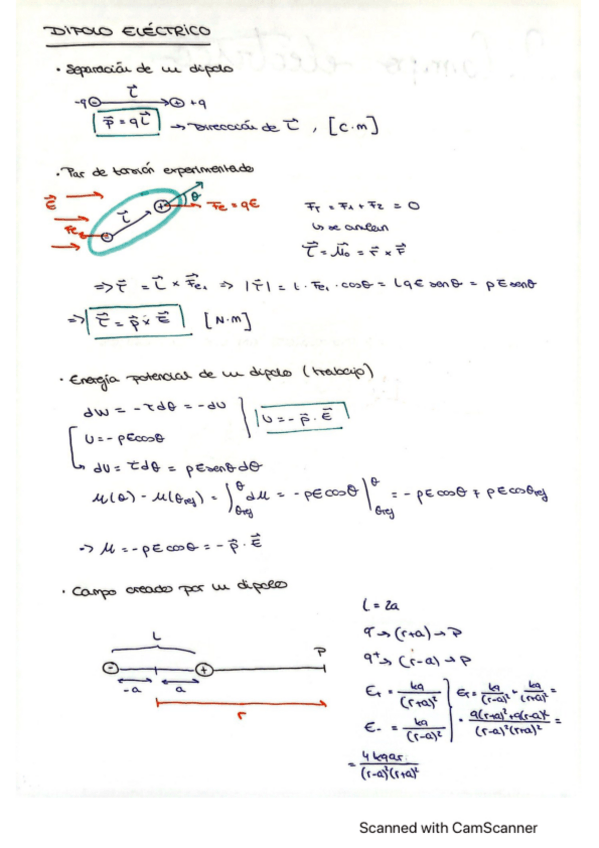 DIPOLO ELÉCTRICO
· Separación de un dipolo
-q ⊖ → ⊕ +q
p⃗ = qL⃗ → Dirección de L⃗ , [C·m]
· Par de torsión experimentado
E⃗ L⃗ θ Fe = qE
Fe
F_T = F₁ + F₂ = 0
↳ se anulan
τ⃗ = M⃗₀ = r⃗ × F⃗
=> τ⃗ = L⃗ × F⃗e₁ => |τ⃗| = L · Fe₁ · cosθ = LqE senθ = pE senθ
=> τ⃗ = p⃗ × E⃗ [N·m]
· Energía potencial de un dipolo (trabajo)
dW = -τdθ = -dU
U = -p⃗ · E⃗
U = -pEcosθ
↳ dU = τdθ = pEsenθdθ
U(θ) - U(θref) = ∫ θref θ dU = -pEcosθ | θref θ = -pEcosθ + pEcosθref
-> U = -pEcosθ = -p⃗ · E⃗
· Campo creado por un dipolo
L = 2a
q⁻ → (r+a) → P
q⁺ → (r-a) → P
L
⊖ ⊕ P
-a a
r
E₊ = kq/(r+a)²
E₋ = kq/(r-a)²
E_T = kq/(r-a)² - kq/(r+a)² =
q(r+a)²+q(r-a)²/(r-a)²(r+a)² =
= 4kqar/(r-a)²(r+a)²
Scanned with CamScanner